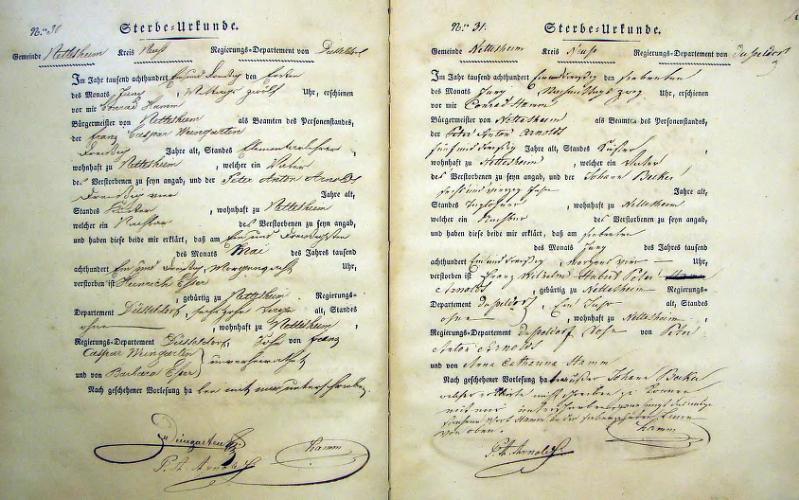 N.ro 30
Sterbe-Urkunde.
Gemeinde Nettesheim Kreis Neuß Regierungs-Departement von Düsseldorf
Im Jahr tausend achthundert Ein und Dreißig den Ersten
des Monats Juny, Mittags zwölf Uhr, erschienen
vor mir Conrad Hamm
Bürgermeister von Nettesheim als Beamten des Personenstandes,
der Franz Caspar Weingarten
Dreißig Jahre alt, Standes Elementarlehrer,
wohnhaft zu Nettesheim, welcher ein Vater
des Verstorbenen zu seyn angab, und der Peter Anton Arnolds
Dreißig Jahre alt,
Standes Küster, wohnhaft zu Nettesheim
welcher ein Nachbar des Verstorbenen zu seyn angab,
und haben diese beide mir erklärt, daß am Ein und Dreißigsten
des Monats Mai des Jahres tausend
achthundert Ein und Dreißig Morgens Uhr,
verstorben ist Heinrich Esser
, gebürtig zu Nettesheim Regierungs-
Departement Düsseldorf, alt, Standes
ohne, wohnhaft zu Nettesheim,
Regierungs-Departement Düsseldorf, Sohn von Franz
Caspar Weingarten
und von Barbara Esser unverheirathet
Nach geschehener Vorlesung haben mit mir unterschrieben.
Weingarten
P. A. Arnolds Hamm
N.ro 31.
Sterbe-Urkunde.
Gemeinde Nettesheim Kreis Neuß Regierungs-Departement von Düsseldorf
Im Jahr tausend achthundert Ein und dreißig den siebenten
des Monats Juny Nachmittags zwey Uhr, erschienen
vor mir Conrad Hamm
Bürgermeister von Nettesheim als Beamten des Personenstandes,
der Peter Anton Arnolds
fünf und dreißig Jahre alt, Standes Küster
wohnhaft zu Nettesheim, welcher ein Vater
des Verstorbenen zu seyn angab, und der Johann Becker
sechs und vierzig Jahre Jahre alt,
Standes Taglöhner, wohnhaft zu Nettesheim
welcher ein Nachbar des Verstorbenen zu seyn angab,
und haben diese beide mir erklärt, daß am siebenten
des Monats Juny des Jahres tausend
achthundert Ein und dreißig Morgens vier Uhr,
verstorben ist Franz Wilhelm Hubert Peter
Arnolds, gebürtig zu Nettesheim Regierungs-
Departement Düsseldorf, Ein Jahr alt, Standes
ohne, wohnhaft zu Nettesheim,
Regierungs-Departement Düsseldorf Sohn von Peter
Anton Arnolds
und von Anna Catharina Hamm
Nach geschehener Vorlesung hat außer Johann Becker
welcher erklärte nicht schreiben zu können
mit mir unterschrieben
von oben.
P. A. Arnolds Hamm